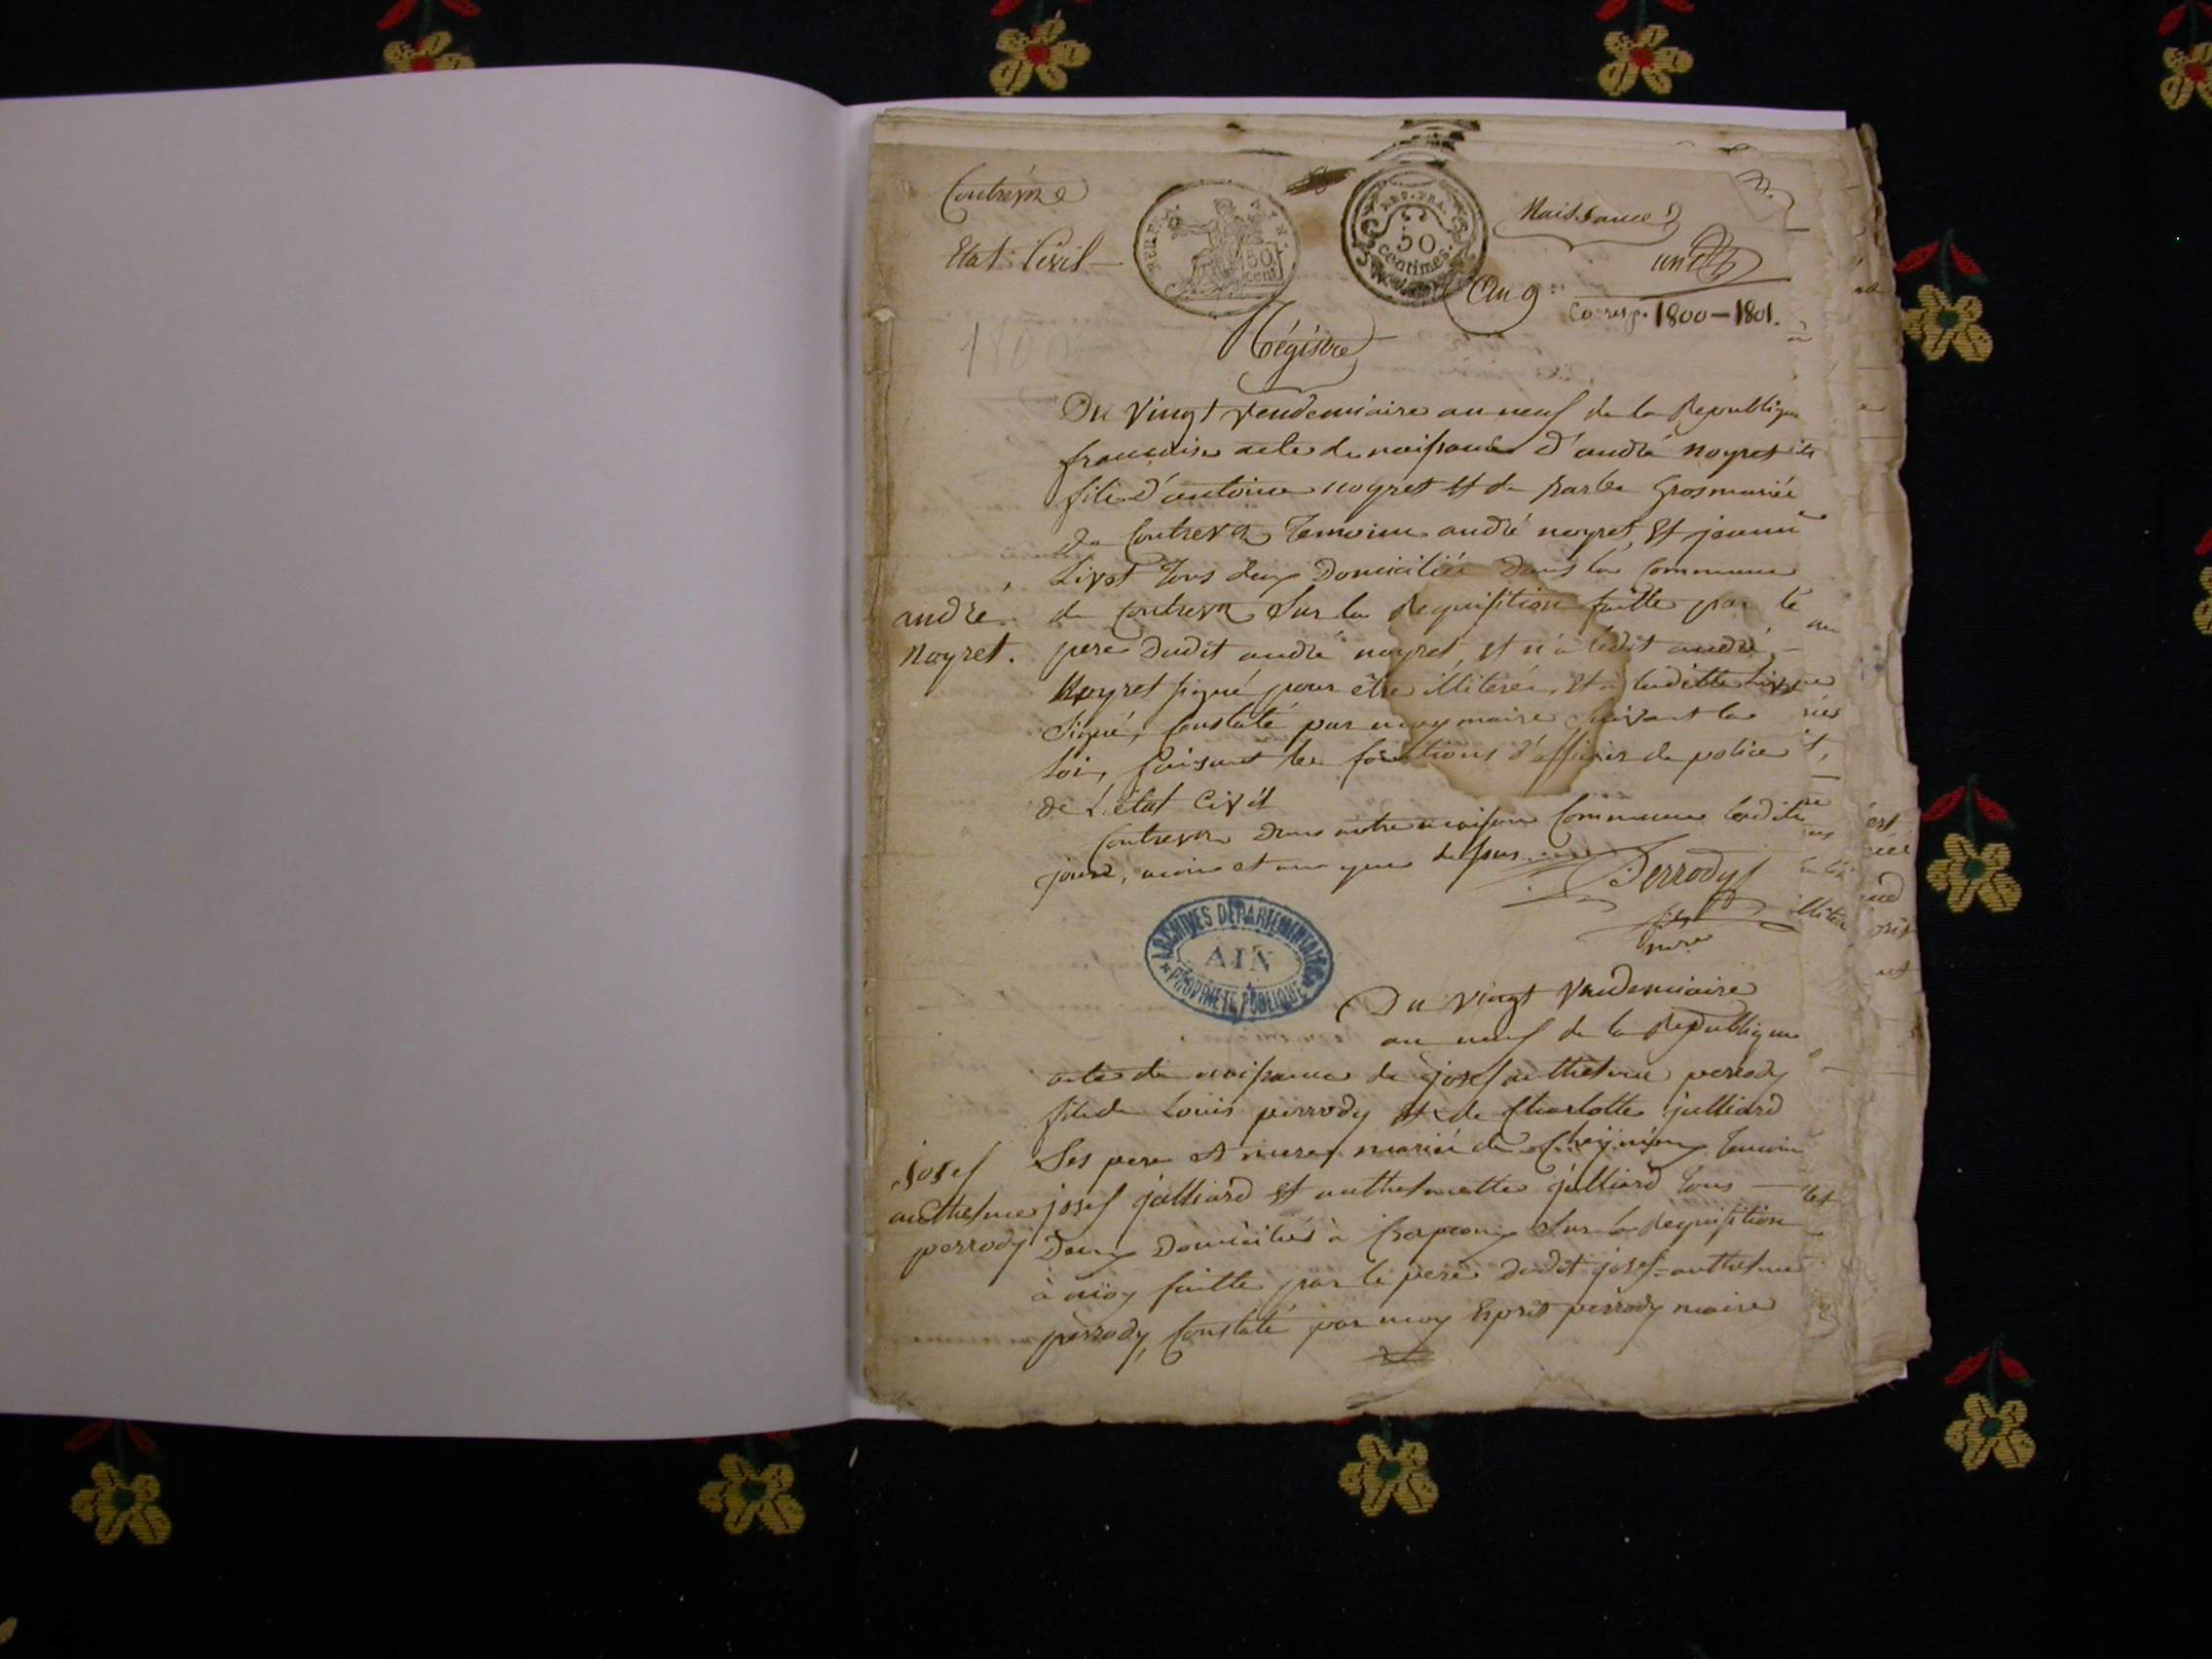 Contrevoz
Naissance
Etat Civil
REP. FRA.
50
centimes.
AIN.
50
cent
un
An 9
Corresp. 1800-1801.
Régistre
1800
Du Vingt vendemiaire an neuf de la Republique
francaise acte de naissance d'andré noyret
fils d'antoine noyret et de Barbe Grosmariés
de Contrevoz Temoins andré noyret, et jeanne
Livet Tous deux Domiciliés dans la Commune
de Contrevoz Sur la Requisition faitte par le
pere dudit andré noyret, et n'a ledit andré
Noyret signé pour être illiteré, et a laditte
Signé, Constaté par moy maire Suivant la
Loi, faisant les fonctions d'officier de police
de L'état Civil
Contrevoz dans notre maison Commune lesdits
jours, mois et an que dessus
andré
Noyret.
Perrody
maire
ARCHIVES DÉPARTEMENTALES
AIN
PROPRIÉTÉ PUBLIQUE
Du vingt Vendemiaire
an neuf de la Republique
acte de naissance de josef anthelme perrody
fils de Louis perrody et de Charlotte julliard
Ses pere et mere mariés de Cheignieu Temoin
josef julliard et anthelmette julliard Tous
Deux Domiciliés à Sur la Requisition
à moy faitte par le pere dudit josef-anthelme
perrody, Constaté par moy Esprit perrody maire
josef
anthelme
perrody